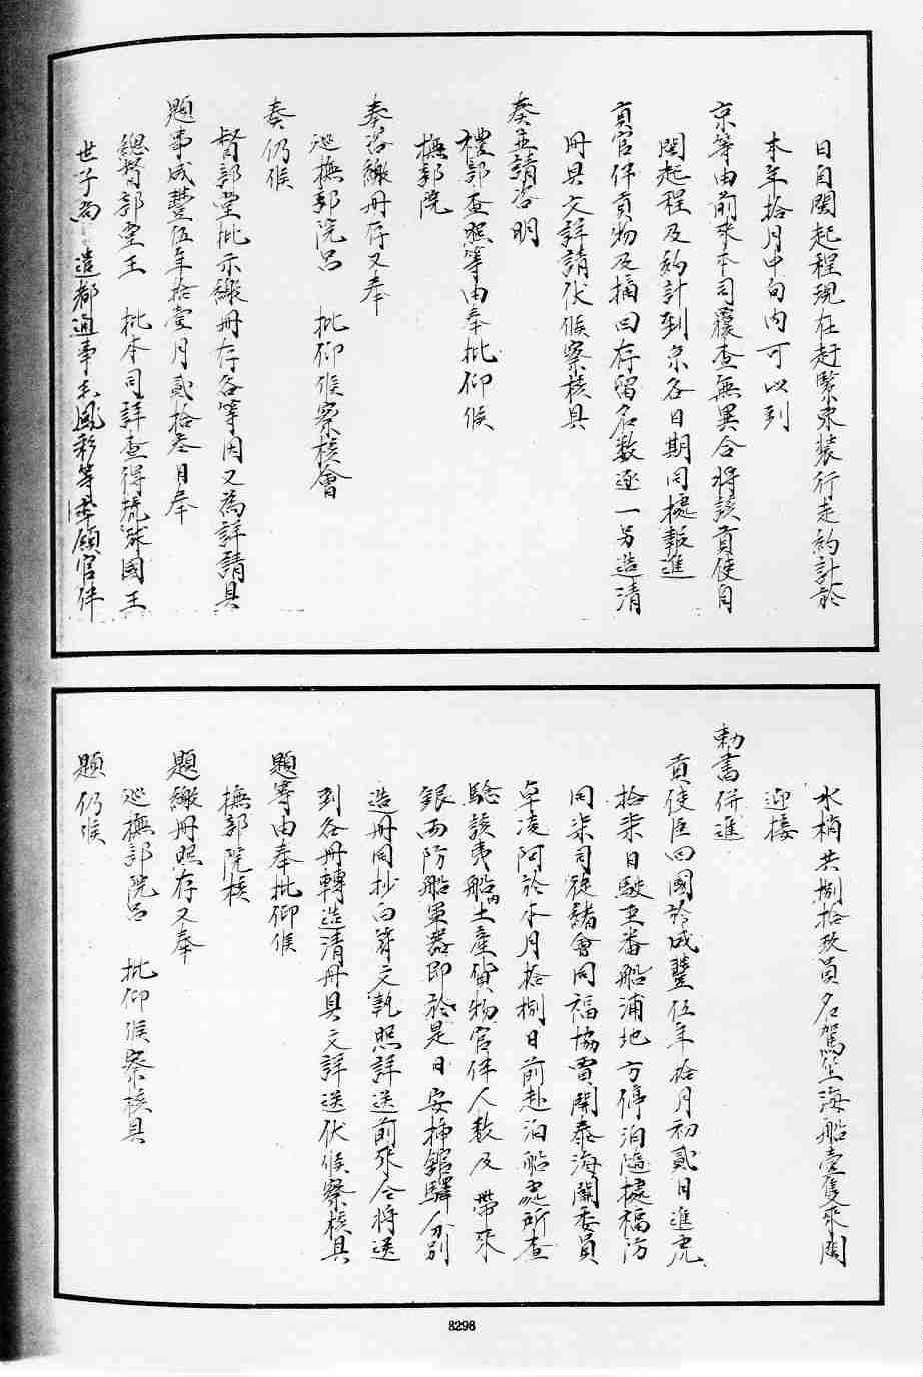 日自閩起程現在赶緊束裝行走約計於
本年拾月中旬內可以到
京等由前來本司覆查無異合將該貢使自
閩起程及約計到京各日期同據報進
貢官伴貢物及摘回存留名數逐一另造清
冊具文詳請伏候察核具
奏並請咨明
禮部查照等由奉批仰候
撫部院
奏咨繳冊存又奉
巡撫部院呂　批仰候察核會
奏仍候
督部堂批示繳冊存各等因又為詳請具
題事咸豐伍年拾壹月貳拾叁日奉
總督部堂王　批本司詳查得琉球國王
世子尚　遣都通事毛鳳彩等坐領官伴
水梢共捌拾玖員名駕坐海船壹隻來閩
迎接
勅書併進
貢使臣回國於咸豐伍年拾月初貳日進虎
拾柒日駛至番船浦地方停泊隨據福防
同柒司徒緒會同福協賈開泰海關委員
卓凌阿於本月拾捌日前赴泊船處所查
驗該夷船內土產貨物官伴人數及　帶來
銀兩防船軍器即於是日安插館驛分別
造冊同抄白符文執照詳送前來合將送
到各冊轉造清冊具文詳送伏候察核具
題等由奉批仰候
撫部院核
題繳冊照存又奉
巡撫部院呂　批仰候察核具
題仍候
8298